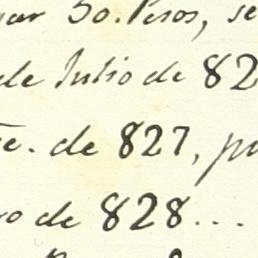 50. Pesos, se
de Julio de 82
te. de 827, p
ro de 828...